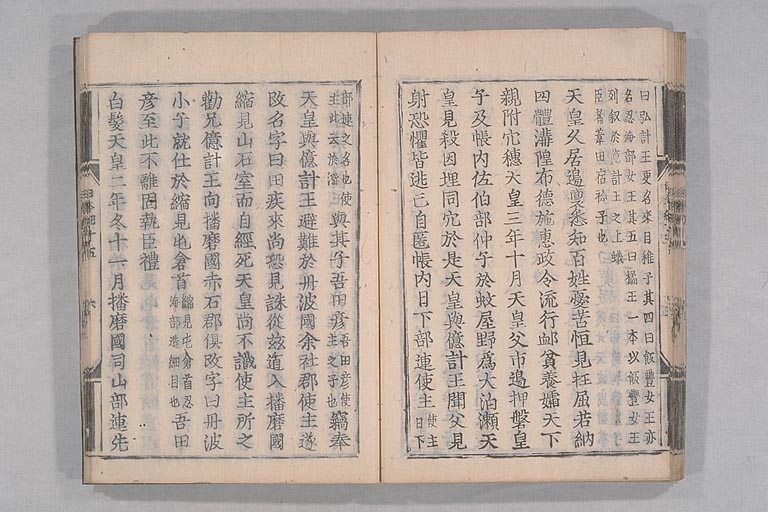 曰弘計王更名來目稚子其四曰飯豐女王亦
名忍海部女王其五曰橘王一本以飯豐女王
列叙於億計王之上蟻
臣者葦田宿祢子也
天皇久居邊裔悉知百姓憂苦恒見枉屈若納
四體溝隍布德施惠政令流行邮貧養孀天下
親附穴穗天皇三年十月天皇父市邊押磐皇
子及帳内佐伯部仲子於蚊屋野爲大泊瀬天
皇見殺因埋同穴於是天皇與億計王聞父見
射恐懼皆逃亡自匿帳内日下部連使主使主日下
部連之名也使主此云於瀰與其子吾田彦吾田彦使主之子也竊奉
天皇與億計王避難於丹波國余社郡使主遂
改名字曰田疾來尚恐見誅從兹遁入播磨國
縮見山石室而自經死天皇尚不識使主所之
勸兄億計王向播磨國赤石郡倶改字曰丹波
小子就仕於縮見屯倉首縮見屯倉首忍海部造細目也吾田
彦至此不離固執臣禮
白髮天皇二年冬十一月播磨國司山部連先